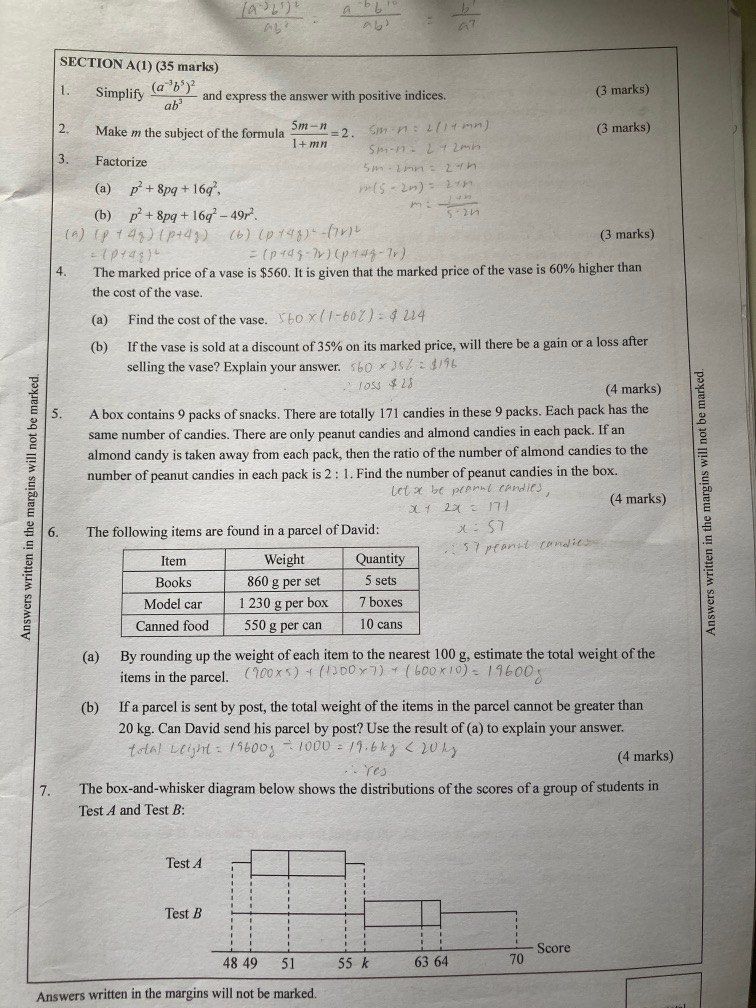 (a⁻³b⁵)² / ab³ = a⁻⁶b¹⁰ / ab³ = b⁷ / a⁷
SECTION A(1) (35 marks)
1. Simplify (a⁻³b⁵)² / ab³ and express the answer with positive indices. (3 marks)
2. Make m the subject of the formula (5m − n) / (1 + mn) = 2. (3 marks)
5m - n = 2(1+mn)
5m - n = 2 + 2mn
5m - 2mn = 2+n
m(5 - 2n) = 2+n
m = (2+n) / (5-2n)
3. Factorize
(a) p² + 8pq + 16q²,
(b) p² + 8pq + 16q² − 49r².
(3 marks)
(a) (p + 4q)(p+4q) (b) (p+4q)² - (7r)²
= (p+4q)² = (p+4q-7r)(p+4q-7r)
4. The marked price of a vase is $560. It is given that the marked price of the vase is 60% higher than
the cost of the vase.
(a) Find the cost of the vase. 560 x (1-60%) = $224
(b) If the vase is sold at a discount of 35% on its marked price, will there be a gain or a loss after
selling the vase? Explain your answer. 560 x 35% = $196
∴ loss $28
(4 marks)
5. A box contains 9 packs of snacks. There are totally 171 candies in these 9 packs. Each pack has the
same number of candies. There are only peanut candies and almond candies in each pack. If an
almond candy is taken away from each pack, then the ratio of the number of almond candies to the
number of peanut candies in each pack is 2 : 1. Find the number of peanut candies in the box.
(4 marks)
Let x be peanut candies,
x + 2x = 171
x = 57
∴ 57 peanut candies
6. The following items are found in a parcel of David:
Item Weight Quantity
Books 860 g per set 5 sets
Model car 1 230 g per box 7 boxes
Canned food 550 g per can 10 cans
(a) By rounding up the weight of each item to the nearest 100 g, estimate the total weight of the
items in the parcel. (900x5) + (1300x7) + (600x10) = 19600g
(b) If a parcel is sent by post, the total weight of the items in the parcel cannot be greater than
20 kg. Can David send his parcel by post? Use the result of (a) to explain your answer.
total weight = 19600g ÷ 1000 = 19.6kg < 20kg
∴ Yes
(4 marks)
7. The box-and-whisker diagram below shows the distributions of the scores of a group of students in
Test A and Test B:
Test A
Test B
48 49 51 55 k 63 64 70 Score
Answers written in the margins will not be marked.
Answers written in the margins will not be marked.
Answers written in the margins will not be marked.